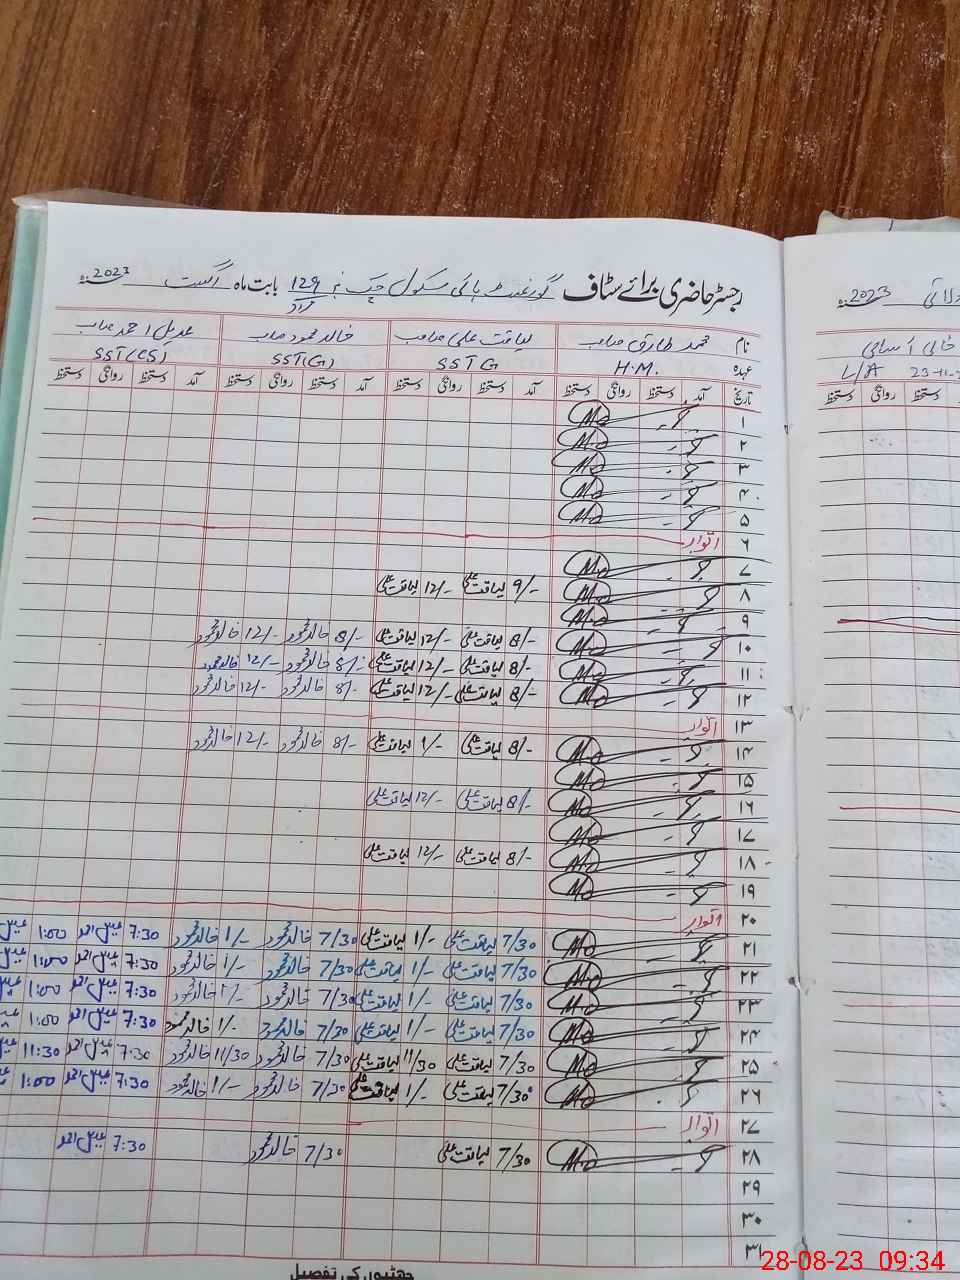 رجسٹر حاضری برائے سٹاف گورنمنٹ ہائی سکول چک نمبر 129 بابت ماہ اگست 2023ء
نام محمد طارق صاحب لیاقت علی صاحب خالد محمود صاحب عدیل احمد صاحب
عہدہ H.M. SSTG SST(G) SST(CS)
تاریخ آمد دستخط روانگی دستخط آمد دستخط روانگی دستخط آمد دستخط روانگی دستخط آمد دستخط روانگی دستخط
۱
۲
۳
۴
۵
۶ اتوار
۷
۸ 9/- لیاقت علی 12/- لیاقت علی
۹
۱۰ 8/- لیاقت علی 12/- لیاقت علی 8/- خالد محمود 12/- خالد محمود
۱۱ 8/- لیاقت علی 12/- لیاقت علی 8/- خالد محمود 12/- خالد محمود
۱۲ 8/- لیاقت علی 12/- لیاقت علی 8/- خالد محمود 12/- خالد محمود
۱۳ اتوار
۱۴ 8/- لیاقت علی 1/- لیاقت علی 8/- خالد محمود 12/- خالد محمود
۱۵
۱۶ 8/- لیاقت علی 12/- لیاقت علی
۱۷
۱۸ 8/- لیاقت علی 12/- لیاقت علی
۱۹
۲۰ اتوار
۲۱ 7/30 لیاقت علی 1/- لیاقت علی 7/30 خالد محمود 1/- خالد محمود 7:30 عدیل احمد 1:00
۲۲ 7/30 لیاقت علی 1/- لیاقت علی 7/30 خالد محمود 1/- خالد محمود 7:30 عدیل احمد 1:00
۲۳ 7/30 لیاقت علی 1/- لیاقت علی 7/30 خالد محمود 1/- خالد محمود 7:30 عدیل احمد 1:00
۲۴ 7/30 لیاقت علی 1/- لیاقت علی 7/30 خالد محمود 1/- خالد محمود 7:30 عدیل احمد 1:00
۲۵ 7/30 لیاقت علی 11/30 لیاقت علی 7/30 خالد محمود 11/30 خالد محمود 7:30 عدیل احمد 11:30
۲۶ 7/30 لیاقت علی 1/- لیاقت علی 7/30 خالد محمود 1/- خالد محمود 7:30 عدیل احمد 1:00
۲۷ اتوار
۲۸ 7/30 لیاقت علی 7/30 خالد محمود 7:30 عدیل احمد
۲۹
۳۰
۳۱
چھٹیوں کی تفصیل
2023ء
خالی آسامی
L/A
دستخط روانگی دستخط
28-08-23 09:34